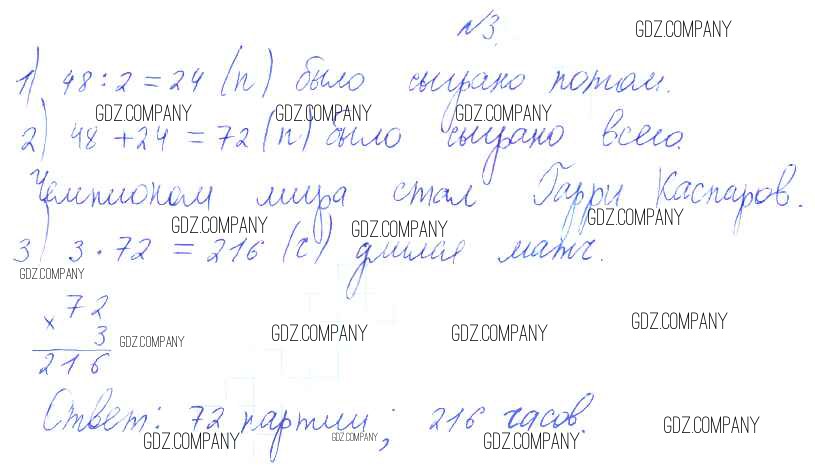 №3. GDZ.COMPANY
1) 48:2=24 (п) было сыграно потом.
GDZ.COMPANY GDZ.COMPANY GDZ.COMPANY
2) 48+24=72 (п) было сыграно всего.
Чемпионом мира стал Гарри Каспаров.
GDZ.COMPANY GDZ.COMPANY GDZ.COMPANY
3) 3·72=216 (ч) длился матч.
GDZ.COMPANY
72
× 3 GDZ.COMPANY GDZ.COMPANY GDZ.COMPANY GDZ.COMPANY
216
Ответ: 72 партии; 216 часов.
GDZ.COMPANY GDZ.COMPANY GDZ.COMPANY GDZ.COMPANY